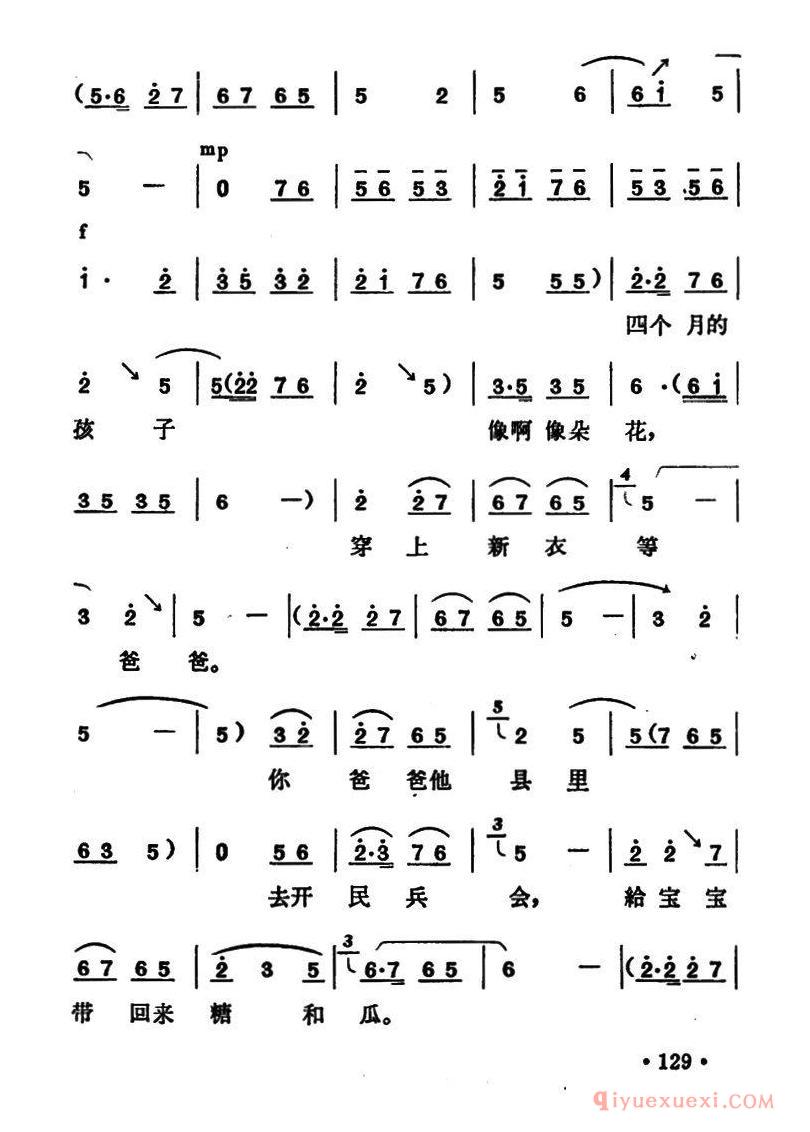 (5·6 2̇7 | 67 65 | 5 2 | 5 6 | 6i̇ 5 |
mp
5 — | 0 76 | 56 53 | 2̇i̇ 76 | 53 56 |
f
i̇· 2̇ | 3̇5̇ 3̇2̇ | 2̇i̇ 76 | 5 55) | 2̇·2̇ 76 |
四个 月的
2̇ 5 | 5(2̇2̇ 76 | 2̇ 5) | 3·5 35 | 6·(6i̇ |
孩 子 像啊 像朵 花,
35 35 | 6 —) | 2̇ 2̇7 | 67 65 | 4 5 — |
穿 上 新 衣 等
3 2̇ | 5 — | (2̇·2̇ 2̇7 | 67 65 | 5 — | 3 2̇ |
爸 爸。
5 — | 5) 32̇ | 2̇7 65 | 5 2 5 | 5(7 65 |
你 爸 爸他 县 里
63 5) | 0 56 | 2̇·3̇ 76 | 3 5 — | 2̇ 2̇ 7 |
去开 民 兵 会, 給 宝 宝
67 65 | 2̇ 3 5 | 3 6·7 65 | 6 — | (2̇·2̇ 2̇7 |
带 回来 糖 和 瓜。
·129·
qiyuexuexi.COM